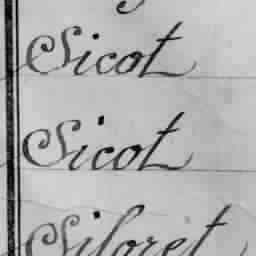 Sicot
Sicot
Siloret